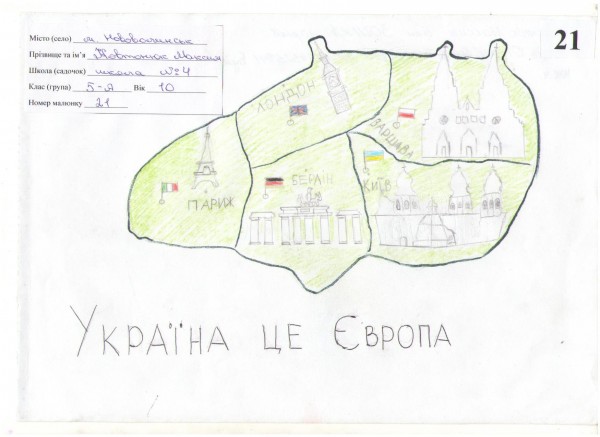 Місто (село) м. Нововолинськ
Прізвище та ім'я Жовтонюк Максим
Школа (садочок) школа №4
Клас (група) 5-А Вік 10
Номер малюнку 21
21
ЛОНДОН
ВАРШАВА
ПАРИЖ
БЕРЛІН
КИЇВ
УКРАЇНА ЦЕ ЄВРОПА